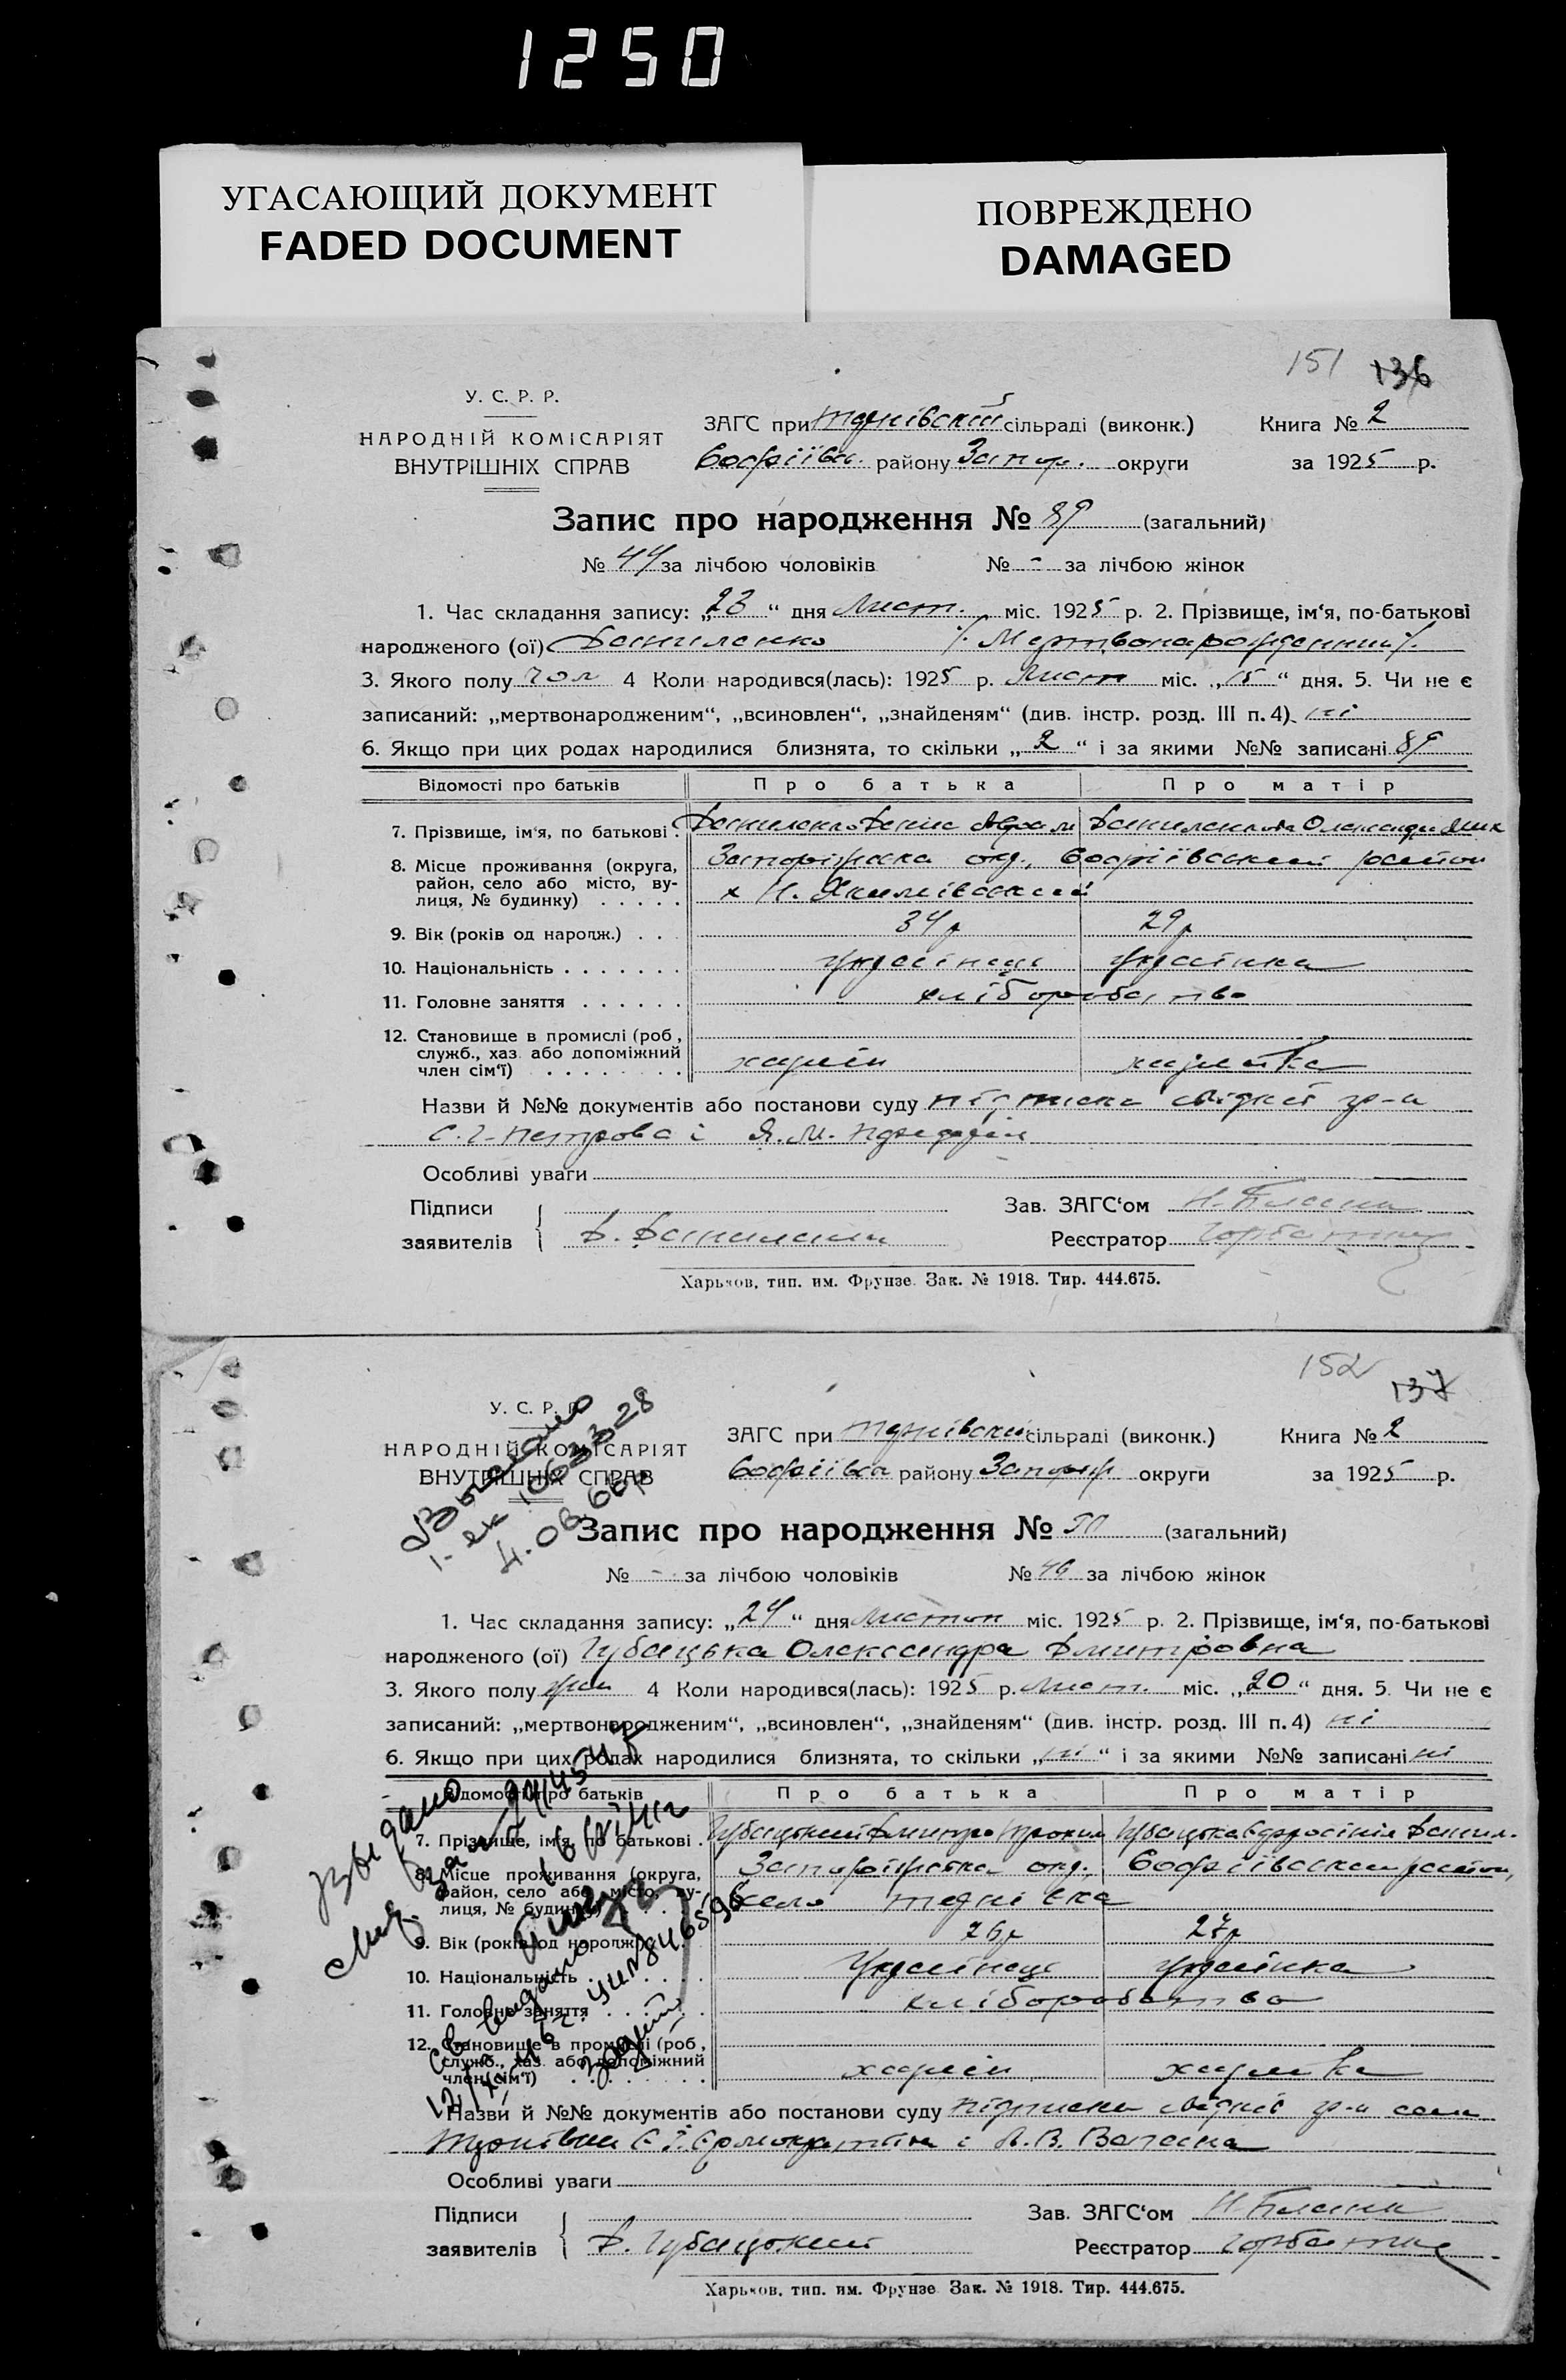 1250
УГАСАЮЩИЙ ДОКУМЕНТ
FADED DOCUMENT
ПОВРЕЖДЕНО
DAMAGED
151 136
У. С. Р. Р.
НАРОДНІЙ КОМІСАРІЯТ
ВНУТРІШНІХ СПРАВ
ЗАГС при сільраді (виконк.) Книга № 2
району Запор. округи за 1925 р.
Запис про народження № 89 (загальний)
№ 44 за лічбою чоловіків № - за лічбою жінок
1. Час складання запису: „23“ дня Лист. міс. 1925 р. 2. Прізвище, ім‘я, по-батькові
народженого (ої) Даниленко /. Мертвонарожденний /.
3. Якого полу чол 4 Коли народився(лась): 1925 р. Лист міс. „15“ дня. 5. Чи не є
записаний: „мертвонародженим“, „всиновлен“, „знайденям“ (див. інстр. розд. III п. 4) ні
6. Якщо при цих родах народилися близнята, то скільки „2“ і за якими №№ записані 89
Відомості про батьків Про батька Про матір
7. Прізвище, ім‘я, по батькові . Даниленко Денис Даниленкова Олександра
8. Місце проживання (округа, Запоріжська окр., Софіївський район
район, село або місто, ву-
лиця, № будинку) . . . . . х Н. Якимівський
9. Вік (років од народж.) . . 34 р 29 р
10. Національність . . . . . . . Українець Українка
11. Головне заняття . . . . . . хліборобство
12. Становище в промислі (роб ,
служб., хаз. або допоміжний
член сім‘ї) . . . . . . . . хазяїн хазяйка
Назви й №№ документів або постанови суду підписка свідків гр-н
С. І. Петрова і Я. М.
Особливі уваги
Підписи Зав. ЗАГС‘ом
заявителів Д. Даниленко Реєстратор
Харьков, тип. им. Фрунзе. Зак. № 1918. Тир. 444.675.
152 137
У. С. Р. Р.
НАРОДНІЙ КОМІСАРІЯТ
ВНУТРІШНІХ СПРАВ
ЗАГС при сільраді (виконк.) Книга № 2
району Запор округи за 1925 р.
Запис про народження № 90 (загальний)
№ - за лічбою чоловіків № 46 за лічбою жінок
1. Час складання запису: „24“ дня Листоп міс. 1925 р. 2. Прізвище, ім‘я, по-батькові
народженого (ої) Губацька Олександра Дмитровна
3. Якого полу жін 4 Коли народився(лась): 1925 р. Лист. міс. „20“ дня. 5. Чи не є
записаний: „мертвонародженим“, „всиновлен“, „знайденям“ (див. інстр. розд. III п. 4) ні
6. Якщо при цих родах народилися близнята, то скільки „ні“ і за якими №№ записані ні
Відомості про батьків Про батька Про матір
7. Прізвище, ім‘я, по батькові . Губацький Дмитро Трохим Губацька Єфросінія Данил.
8. Місце проживання (округа, Запоріжська окр. Софіївський район,
район, село або місто, ву-
лиця, № будинку) село
9. Вік (років од народж.) 26 р 27 р
10. Національність Українець Українка
11. Головне заняття хліборобство
12. Становище в промислі (роб ,
служб., хаз. або допоміжний
член сім‘ї) хазяїн хазяйка
Назви й №№ документів або постанови суду підписка свідків гр-н села
і
Особливі уваги
Підписи Зав. ЗАГС‘ом
заявителів Д. Губацький Реєстратор
Харьков, тип. им. Фрунзе Зак. № 1918. Тир. 444.675.